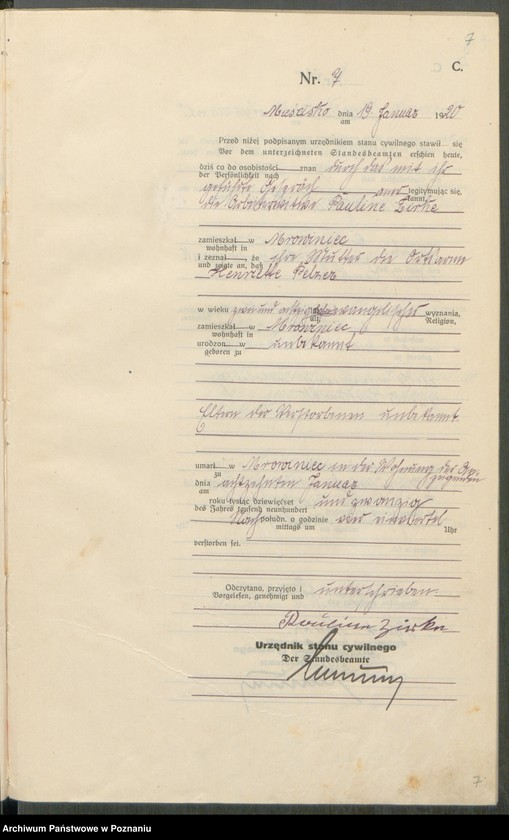 7
C.
Nr. 7
dnia 19 Januar 1920
am
Przed niżej podpisanym urzędnikiem stanu cywilnego stawił się
Vor dem unterzeichneten Standesbeamten erschien heute,
dziś co do osobistości znan durch das mit ihr
der Persönlichkeit nach
geführte Gespräch aner legitymując się,
kannt,
die Arbeiterwitwe Pauline Zirke
zamieszkał w Mrowiniec
wohnhaft in
i zeznał, że ihre Mutter die Ortsarme
und zeigte an, daß
Henriette Pelzer
w wieku zweiundachtzig evangelischer wyznania,
Religion,
zamieszkał w Mrowiniec
wohnhaft in
urodzon w unbekannt
geboren zu
Eltern der Verstorbenen unbekannt.
umarł w Mrowiniec in der Wohnung der
zu
dnia achtzehnten Januar
am
roku tysiąc dziewięćset und zwanzig
des Jahres tausend neunhundert
Nach połudn. o godzinie
mittags um Uhr
verstorben sei.
Odczytano, przyjęto i unterschrieben
Vorgelesen, genehmigt und
Pauline Zirke
Urzędnik stanu cywilnego
Der Standesbeamte
7
Archiwum Państwowe w Poznaniu